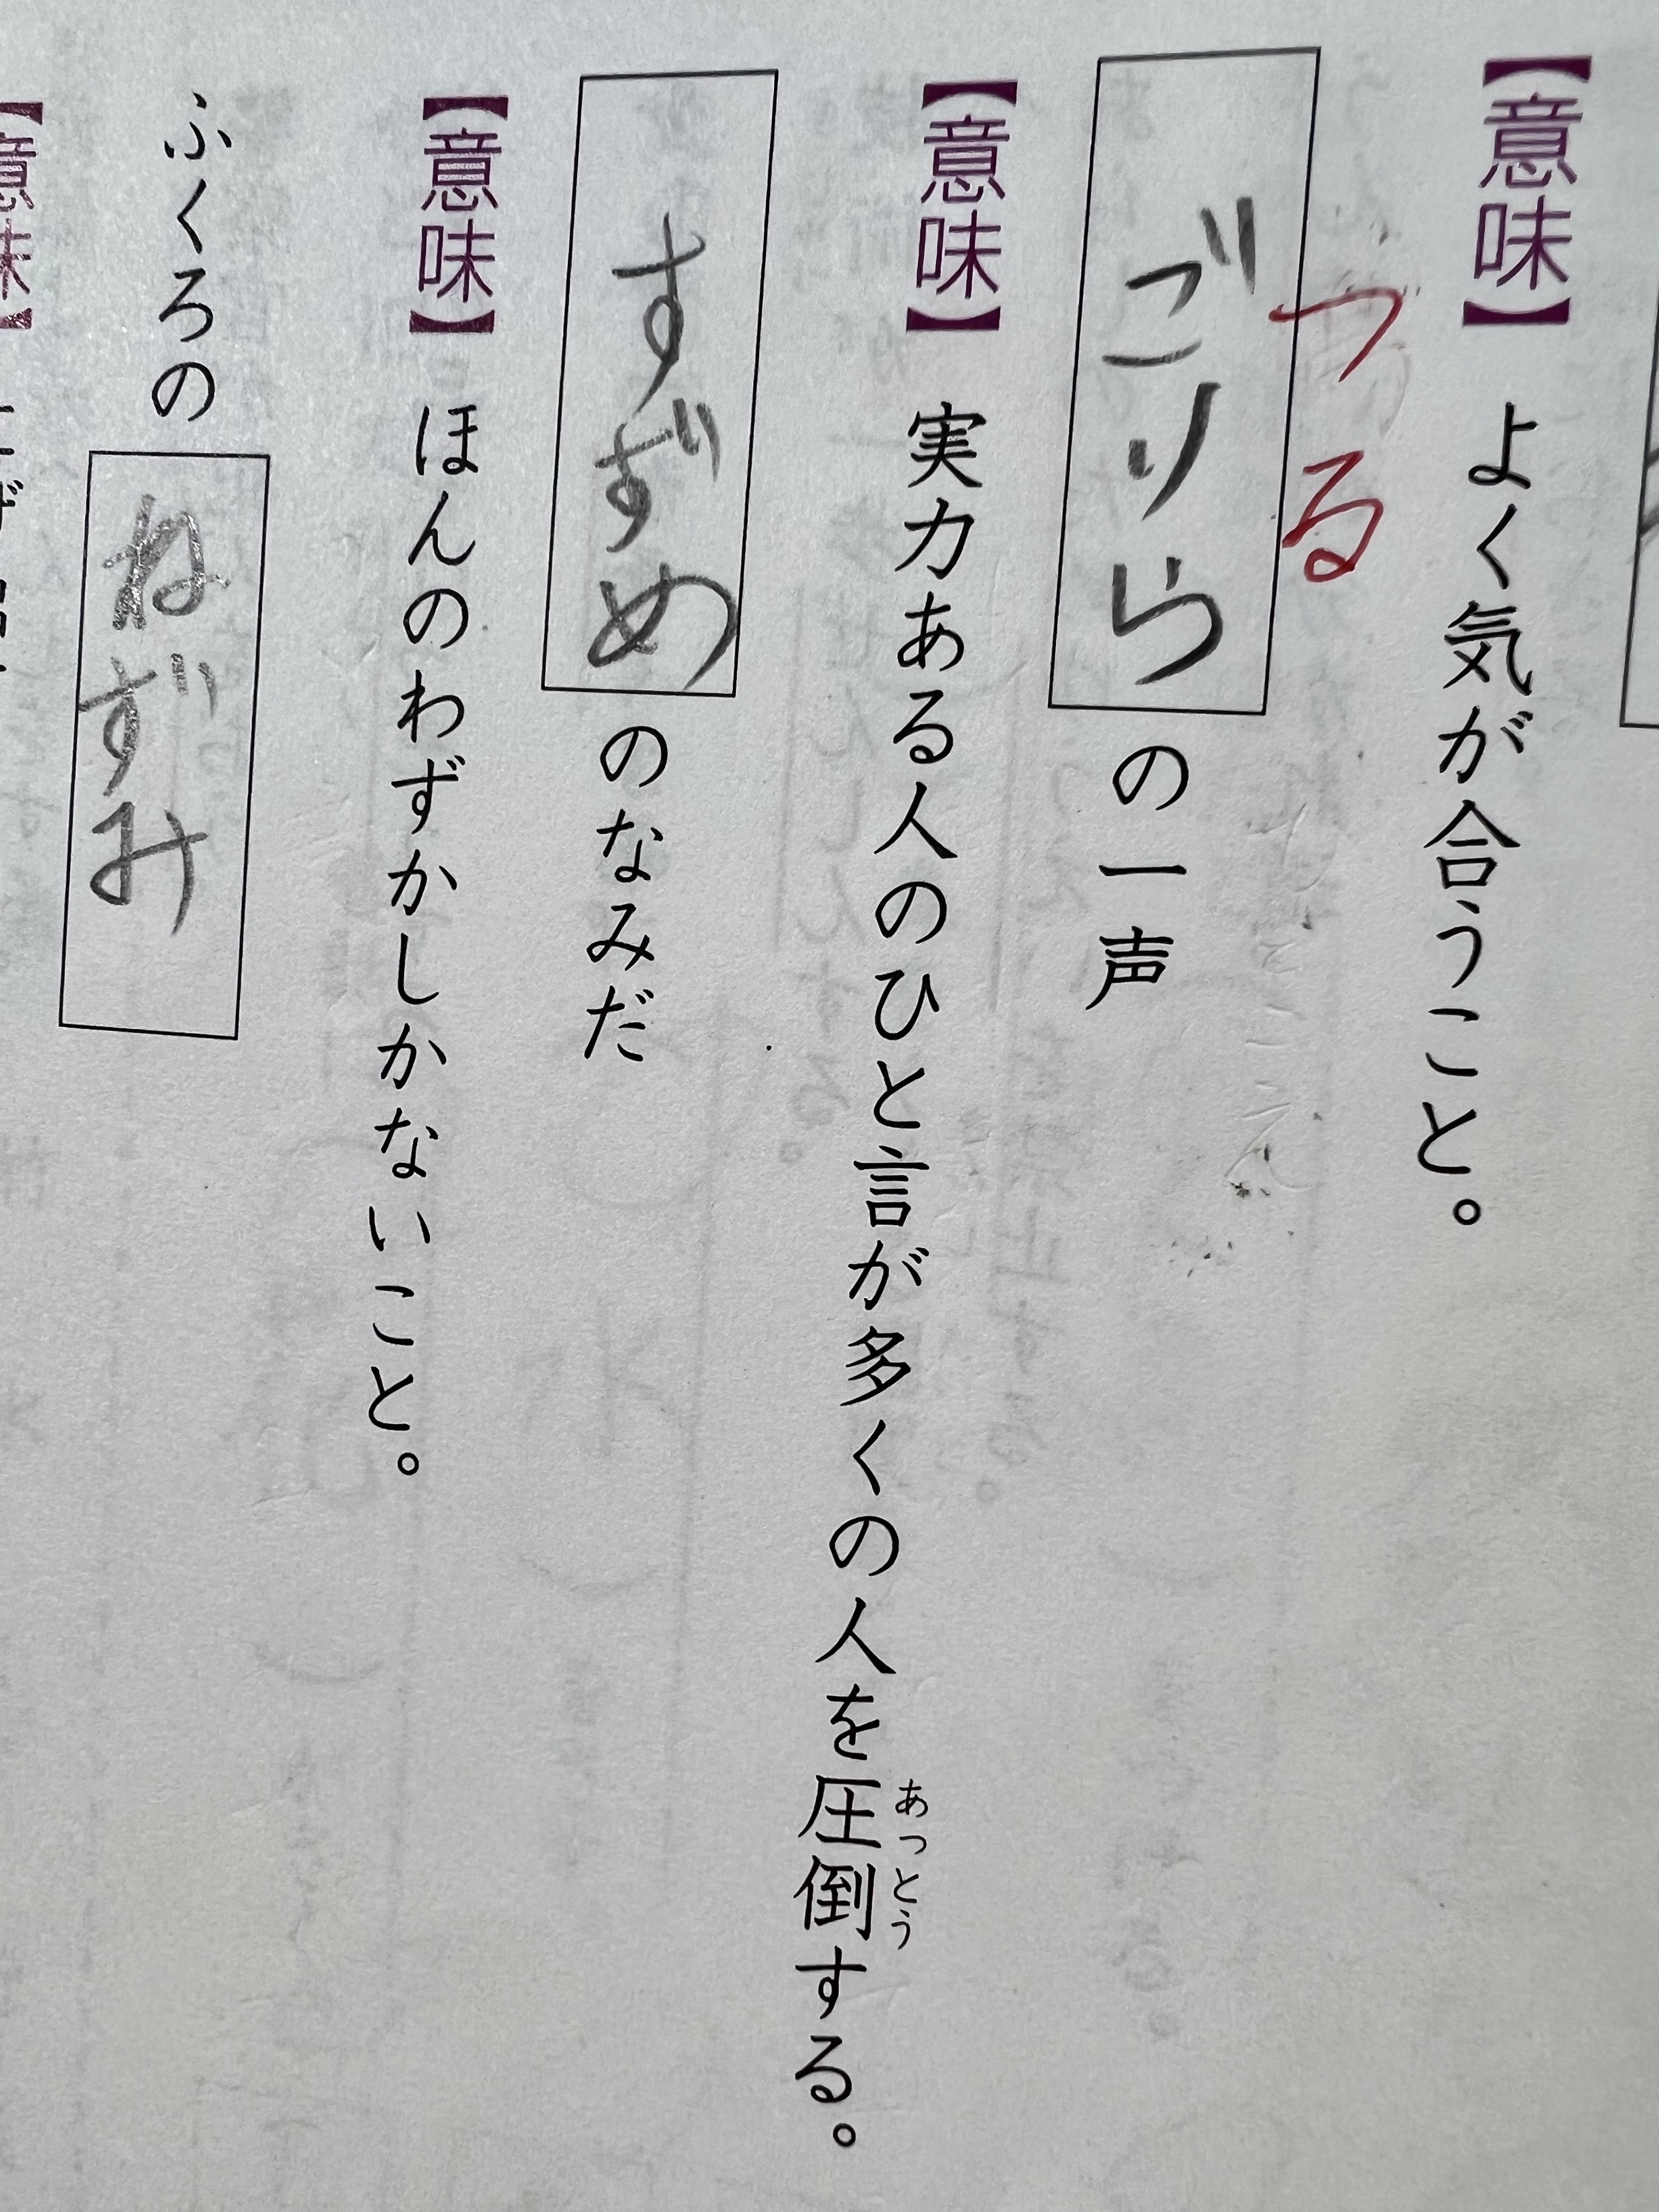 【意味】 よく気が合うこと。
つる
ごりらの一声
【意味】 実力ある人のひと言が多くの人を圧倒する。
あっとう
すずめのなみだ
【意味】 ほんのわずかしかないこと。
ふくろのねずみ
【意味】